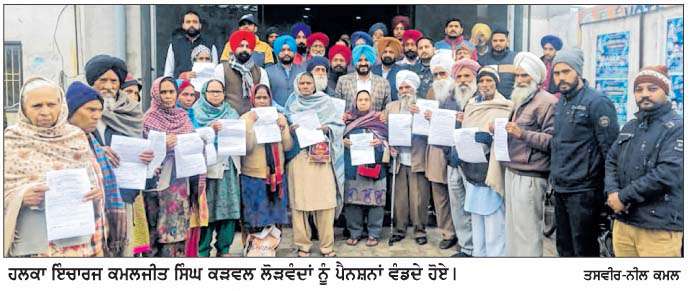 ਹਲਕਾ ਇਚਾਰਜ ਕਮਲਜੀਤ ਸਿੰਘ ਕੜਵਲ ਲੋੜਵੰਦਾਂ ਨੂੰ ਪੈਨਸ਼ਨਾਂ ਵੰਡਦੇ ਹੋਏ। ਤਸਵੀਰ-ਨੀਲ ਕਮਲ